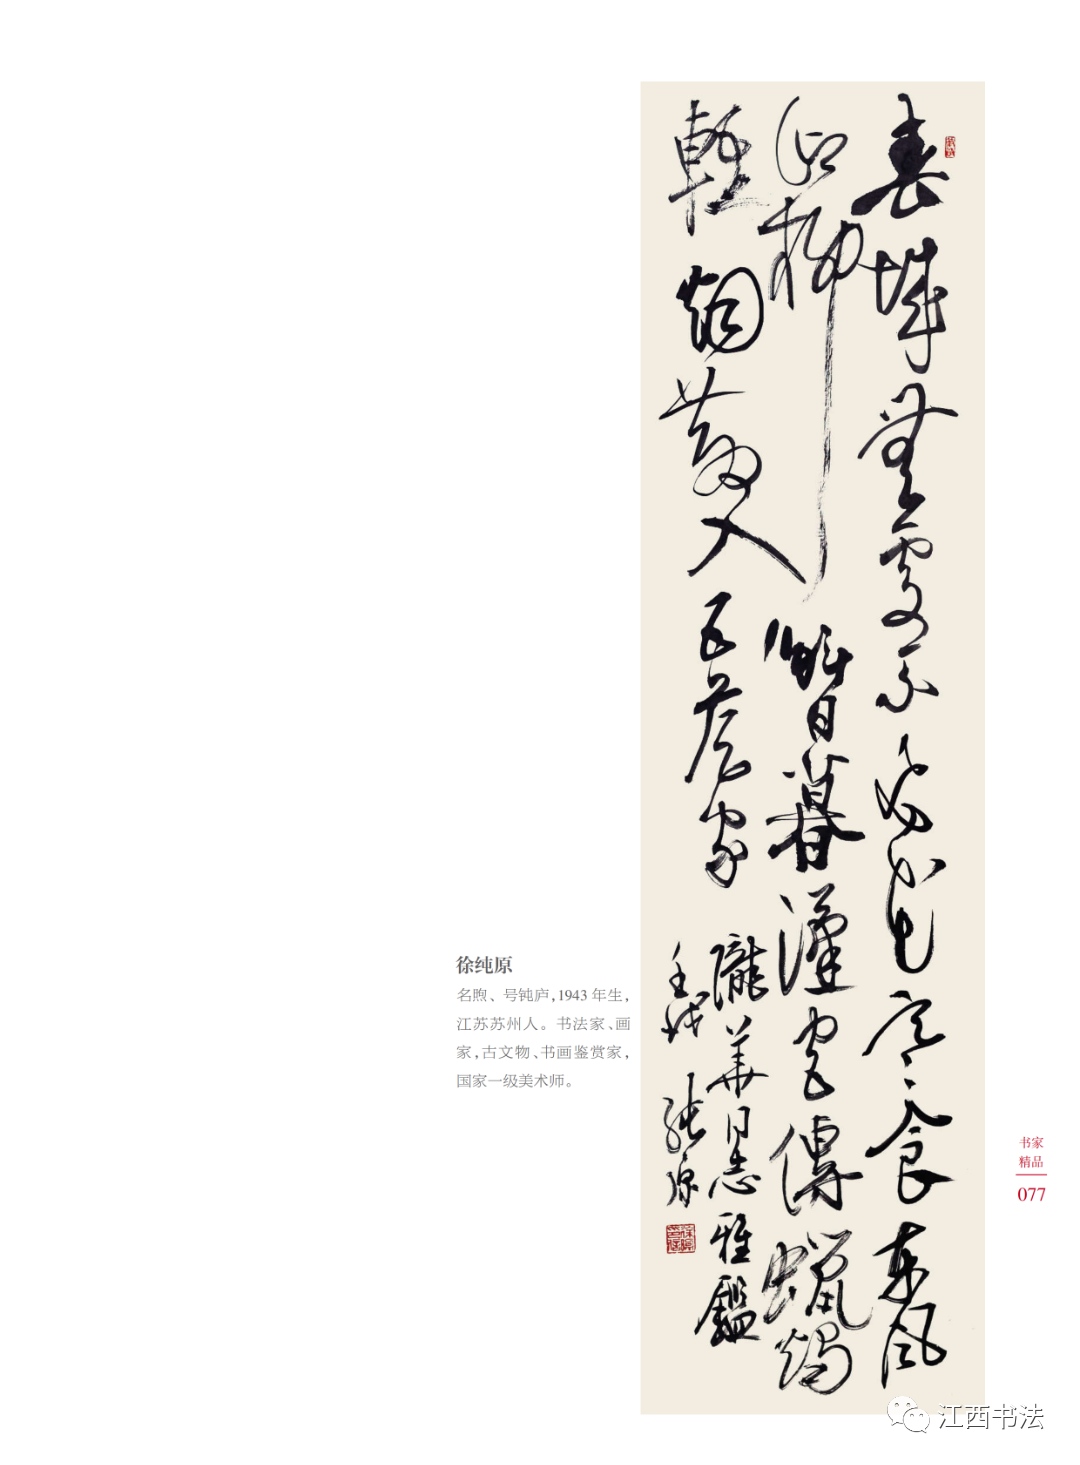 春城無處不飛花寒食東風
御柳斜日暮漢宮傳蠟燭
輕烟散入五侯家
隴華同志雅鑑
壬戌 純原
徐纯原
名煦、号钝庐，1943 年生，
江苏苏州人。书法家、画
家，古文物、书画鉴赏家，
国家一级美术师。
书家
精品
077
江西书法